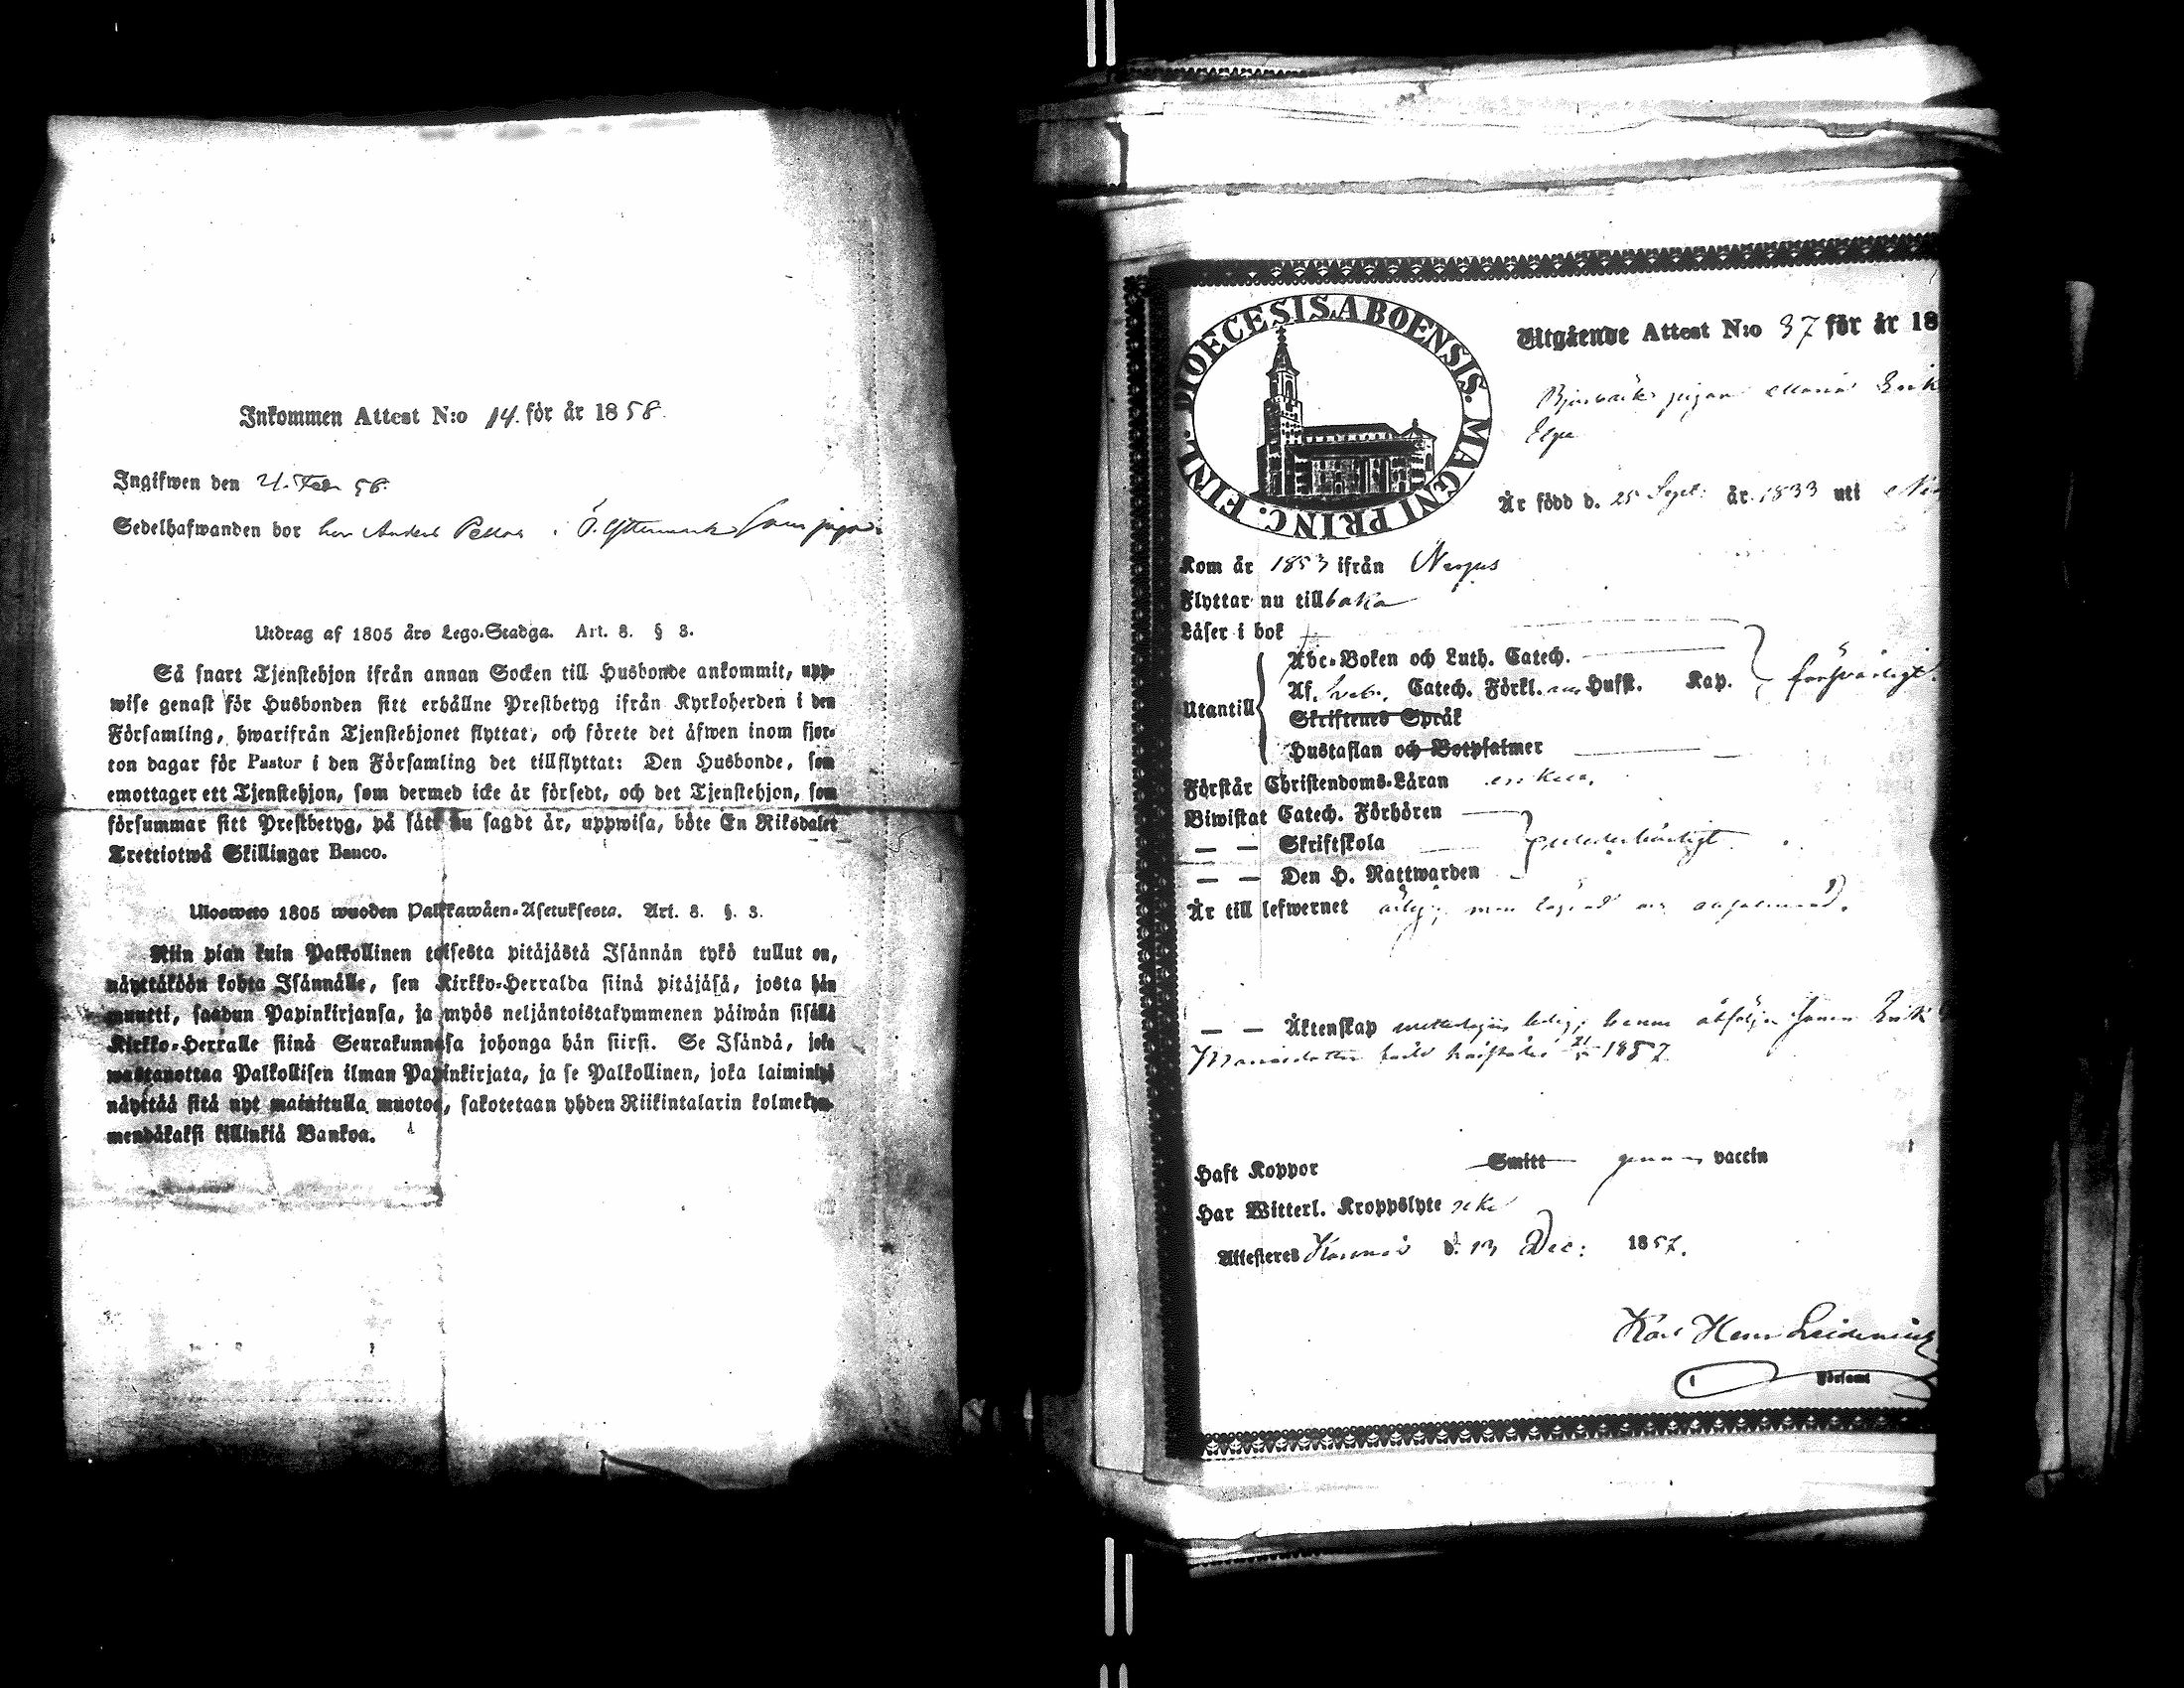 Inkommen Attest N:o 14 för år 1858.
Ingifwen den 21. Febr 58.
Sedelhafwanden bor hos Anders i Ö. Yttermark som piga.
Utdrag af 1805 års Lego-Stadga. Art. 8. § 3.
Så snart Tjenstehjon ifrån annan Socken till Husbonde ankommit, upp-
wise genast för Husbonden sitt erhållne Prestbetyg ifrån Kyrkoherden i den
Församling, hwarifrån Tjenstehjonet flyttat, och förete det äfwen inom fjor-
ton dagar för Pastor i den Församling det tillflyttat: Den Husbonde, som
emottager ett Tjenstehjon, som dermed icke är försedt, och det Tjenstehjon, som
försummar sitt Prestbetyg, på sätt nu sagdt är, uppwisa, böte En Riksdaler
Trettiotwå Skillingar Banco.
Ulosweto 1805 wuoden Palkkawäen-Asetuksesta. Art. 8. §. 3.
Niin pian kuin Palkollinen toisesta pitäjästä Isännän tykö tullut on,
näyttäköön kohta Isännälle, sen Kirkko-Herralda siinä pitäjäsä, josta hän
muutti, saadun Papinkirjansa, ja myös neljäntoistakymmenen päiwän sisällä
Kirkko-Herralle siinä Seurakunnasa johonga hän siirsi. Se Isändä, joka
wastanottaa Palkollisen ilman Papinkirjata, ja se Palkollinen, joka laiminlyö
näyttää sitä nyt mainitulla muotoa, sakotetaan yhden Riikintalarin kolmekym-
mendäkaksi killinkiä Bankoa.
DIOECESIS ABOENSIS. MAGNI PRINC. FINL.
Utgående Attest N:o 37 för år 18
pigan Maria Erik
År född d. 25 Sept. år 1833 uti
Kom år 1853 ifrån Nerpes
Flyttar nu tillbaka
Läser i bok
Abc-Boken och Luth. Catech.
Af Sveb. Catech. Förkl. Husst. Kap. försvarligt
Utantill
Skriftenes Språk
Hustaflan och Botpsalmer
Förstår Christendoms-Läran
Biwistat Catech. Förhören
— — Skriftskola
— — Den H. Nattwarden
Är till lefwernet ärlig, men
— — Äktenskap ledig; henne åtföljer sonen Erik
1857
Haft Koppor Smitt genom vaccin
Har Witterl. Kroppslyte icke
Attesteres Korsnäs d. 13 Dec: 1857.
Karl Henr
Församl